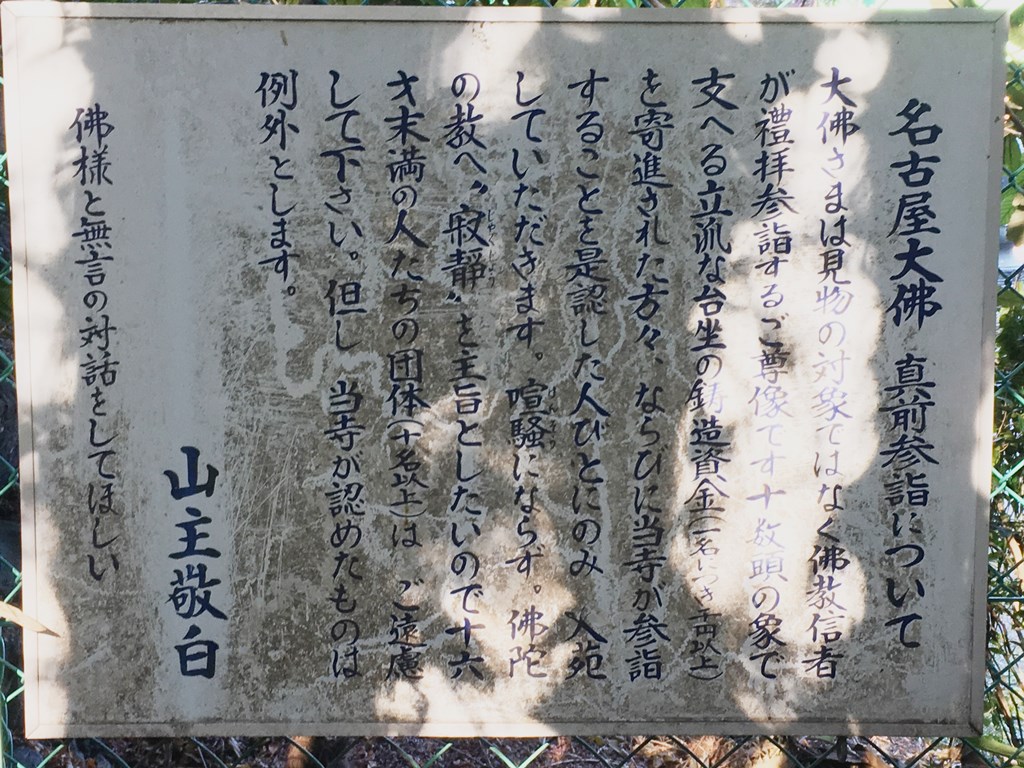 名古屋大佛 真前参詣について
大佛さまは見物の対象ではなく佛教信者
が禮拝参詣するご尊像です十数頭の象で
支へる立派な台坐の鋳造資金(一名につき千円以上)
を寄進された方々、ならびに当寺が参詣
することを是認した人びとにのみ 入苑
していただきます。喧騒にならず。佛陀
の教へ〝寂静〟を主旨としたいので十六
才末満の人たちの団体(十名以上)は ご遠慮
して下さい。但し 当寺が認めたものは
例外とします。
山主敬白
佛様と無言の対話をしてほしい